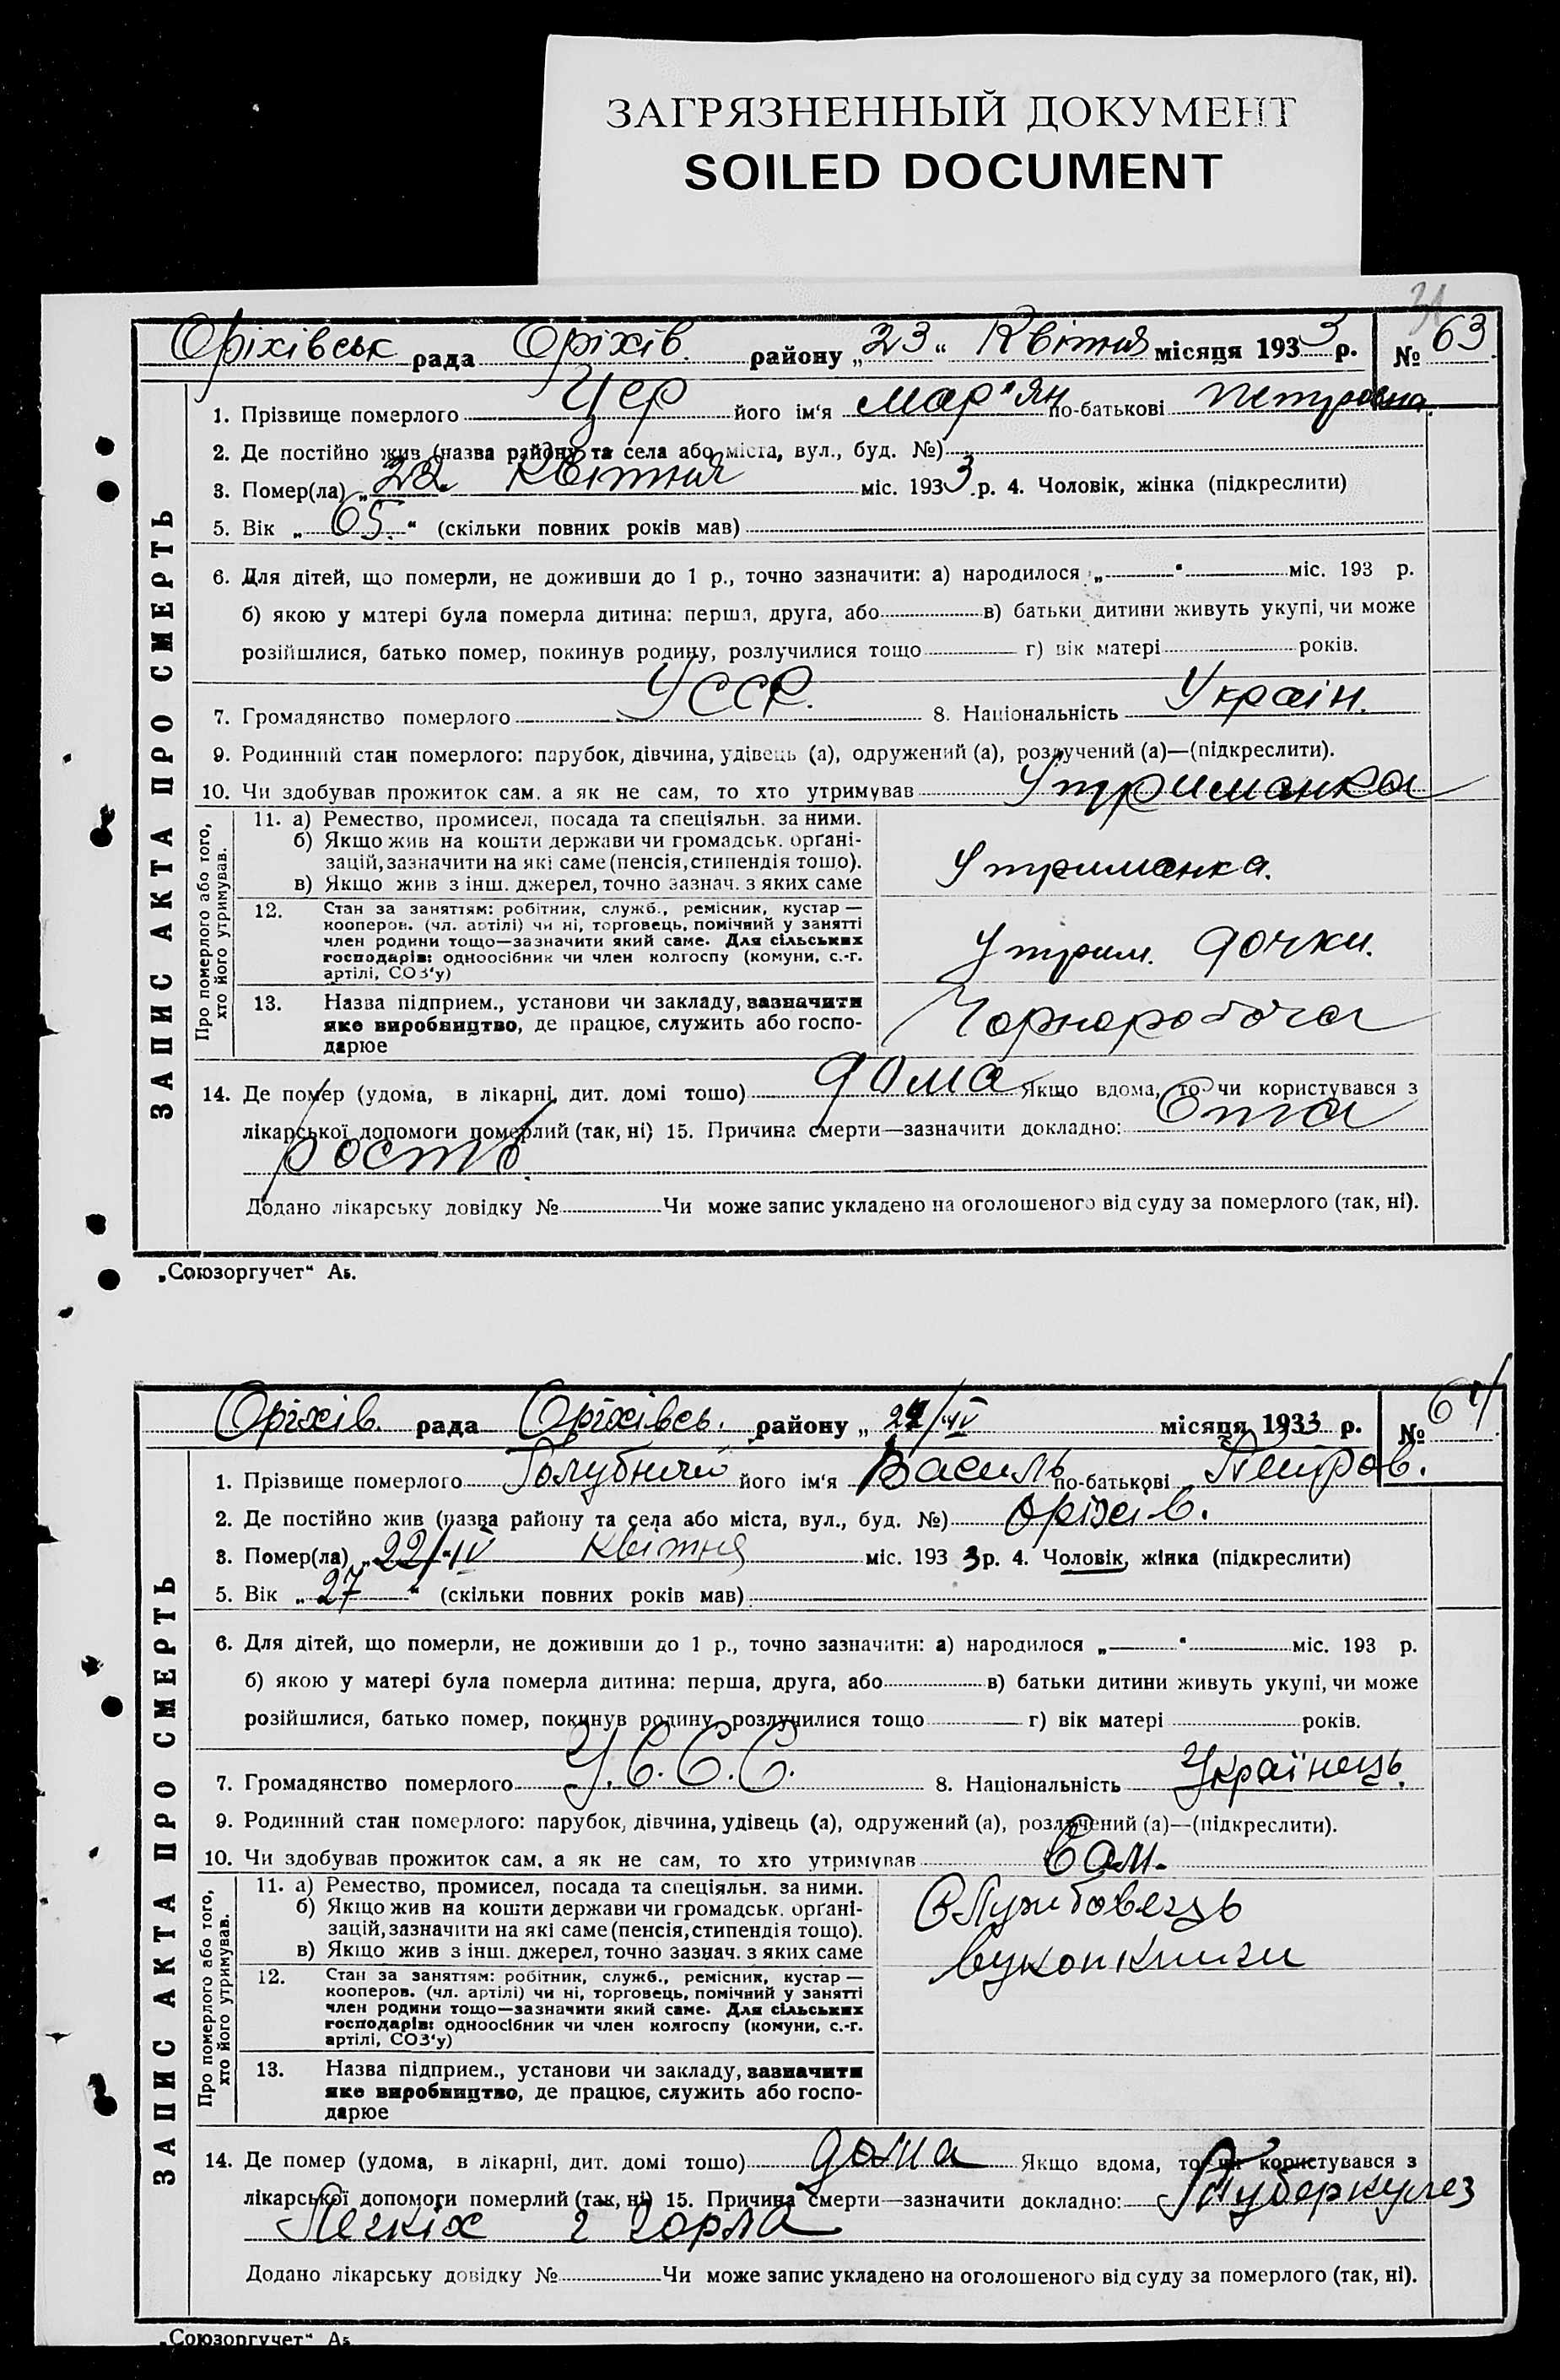 ЗАГРЯЗНЕННЫЙ ДОКУМЕНТ
SOILED DOCUMENT
31
Оріхівськ рада Оріхів. району „23“ Квітня місяця 1933 р. № 63
ЗАПИС АКТА ПРО СМЕРТЬ
1. Прізвище померлого Цер його ім‘я Мар'ян по-батькові Петровна
2. Де постійно жив (назва району та села або міста, вул., буд. №)
3. Помер(ла) „22“ Квітня міс. 1933 р. 4. Чоловік, жінка (підкреслити)
5. Вік „65.“ (скільки повних років мав)
6. Для дітей, що померли, не доживши до 1 р., точно зазначити: а) народилося „ “ міс. 193 р.
б) якою у матері була померла дитина: перша, друга, або в) батьки дитини живуть укупі, чи може
розійшлися, батько помер, покинув родину, розлучилися тощо г) вік матері років.
7. Громадянство померлого УССР. 8. Національність Україн.
9. Родинний стан померлого: парубок, дівчина, удівець (а), одружений (а), розлучений (а)—(підкреслити).
10. Чи здобував прожиток сам, а як не сам, то хто утримував Утриманка
Про померлого або того, хто його утримував.
11. а) Ремество, промисел, посада та спеціяльн. за ними.
б) Якщо жив на кошти держави чи громадськ. орґані-
зацій, зазначити на які саме (пенсія, стипендія тощо).
в) Якщо жив з інш. джерел, точно зазнач. з яких саме
Утриманка.
12. Стан за заняттям: робітник, служб., ремісник, кустар —
кооперов. (чл. артілі) чи ні, торговець, помічний у занятті
член родини тощо—зазначити який саме. Для сільських
господарів: одноосібник чи член колгоспу (комуни, с.-г.
артілі, СОЗ‘у)
Утрим. дочки.
13. Назва підприєм., установи чи закладу, зазначити
яке виробництво, де працює, служить або госпо-
дарює
Чорноробоча
14. Де помер (удома, в лікарні, дит. домі тощо) дома Якщо вдома, то чи користувався з
лікарської допомоги померлий (так, ні) 15. Причина смерти—зазначити докладно: Ста
рость.
Додано лікарську довідку № Чи може запис укладено на оголошеного від суду за померлого (так, ні).
„Союзоргучет“ А5.
Оріхів. рада Оріхівсь. району „24/IV місяця 1933 р. № 64
ЗАПИС АКТА ПРО СМЕРТЬ
1. Прізвище померлого Голубничий його ім‘я Василь по-батькові Петров.
2. Де постійно жив (назва району та села або міста, вул., буд. №) Оріхів.
3. Помер(ла) „22/IV Квітня міс. 1933 р. 4. Чоловік, жінка (підкреслити)
5. Вік „27“ (скільки повних років мав)
6. Для дітей, що померли, не доживши до 1 р., точно зазначити: а) народилося „ “ міс. 193 р.
б) якою у матері була померла дитина: перша, друга, або в) батьки дитини живуть укупі, чи може
розійшлися, батько помер, покинув родину, розлучилися тощо г) вік матері років.
7. Громадянство померлого У.С.С.С. 8. Національність Українець.
9. Родинний стан померлого: парубок, дівчина, удівець (а), одружений (а), розлучений (а)—(підкреслити).
10. Чи здобував прожиток сам, а як не сам, то хто утримував Сам.
Про померлого або того, хто його утримував.
11. а) Ремество, промисел, посада та спеціяльн. за ними.
б) Якщо жив на кошти держави чи громадськ. орґані-
зацій, зазначити на які саме (пенсія, стипендія тощо).
в) Якщо жив з інш. джерел, точно зазнач. з яких саме
Службовець
вукопкниги
12. Стан за заняттям: робітник, служб., ремісник, кустар —
кооперов. (чл. артілі) чи ні, торговець, помічний у занятті
член родини тощо—зазначити який саме. Для сільських
господарів: одноосібник чи член колгоспу (комуни, с.-г.
артілі, СОЗ‘у)
13. Назва підприєм., установи чи закладу, зазначити
яке виробництво, де працює, служить або госпо-
дарює
14. Де помер (удома, в лікарні, дит. домі тощо) дома Якщо вдома, то чи користувався з
лікарської допомоги померлий (так, ні) 15. Причина смерти—зазначити докладно: Туберкульоз
Легких і горла
Додано лікарську довідку № Чи може запис укладено на оголошеного від суду за померлого (так, ні).
„Союзоргучет“ А5